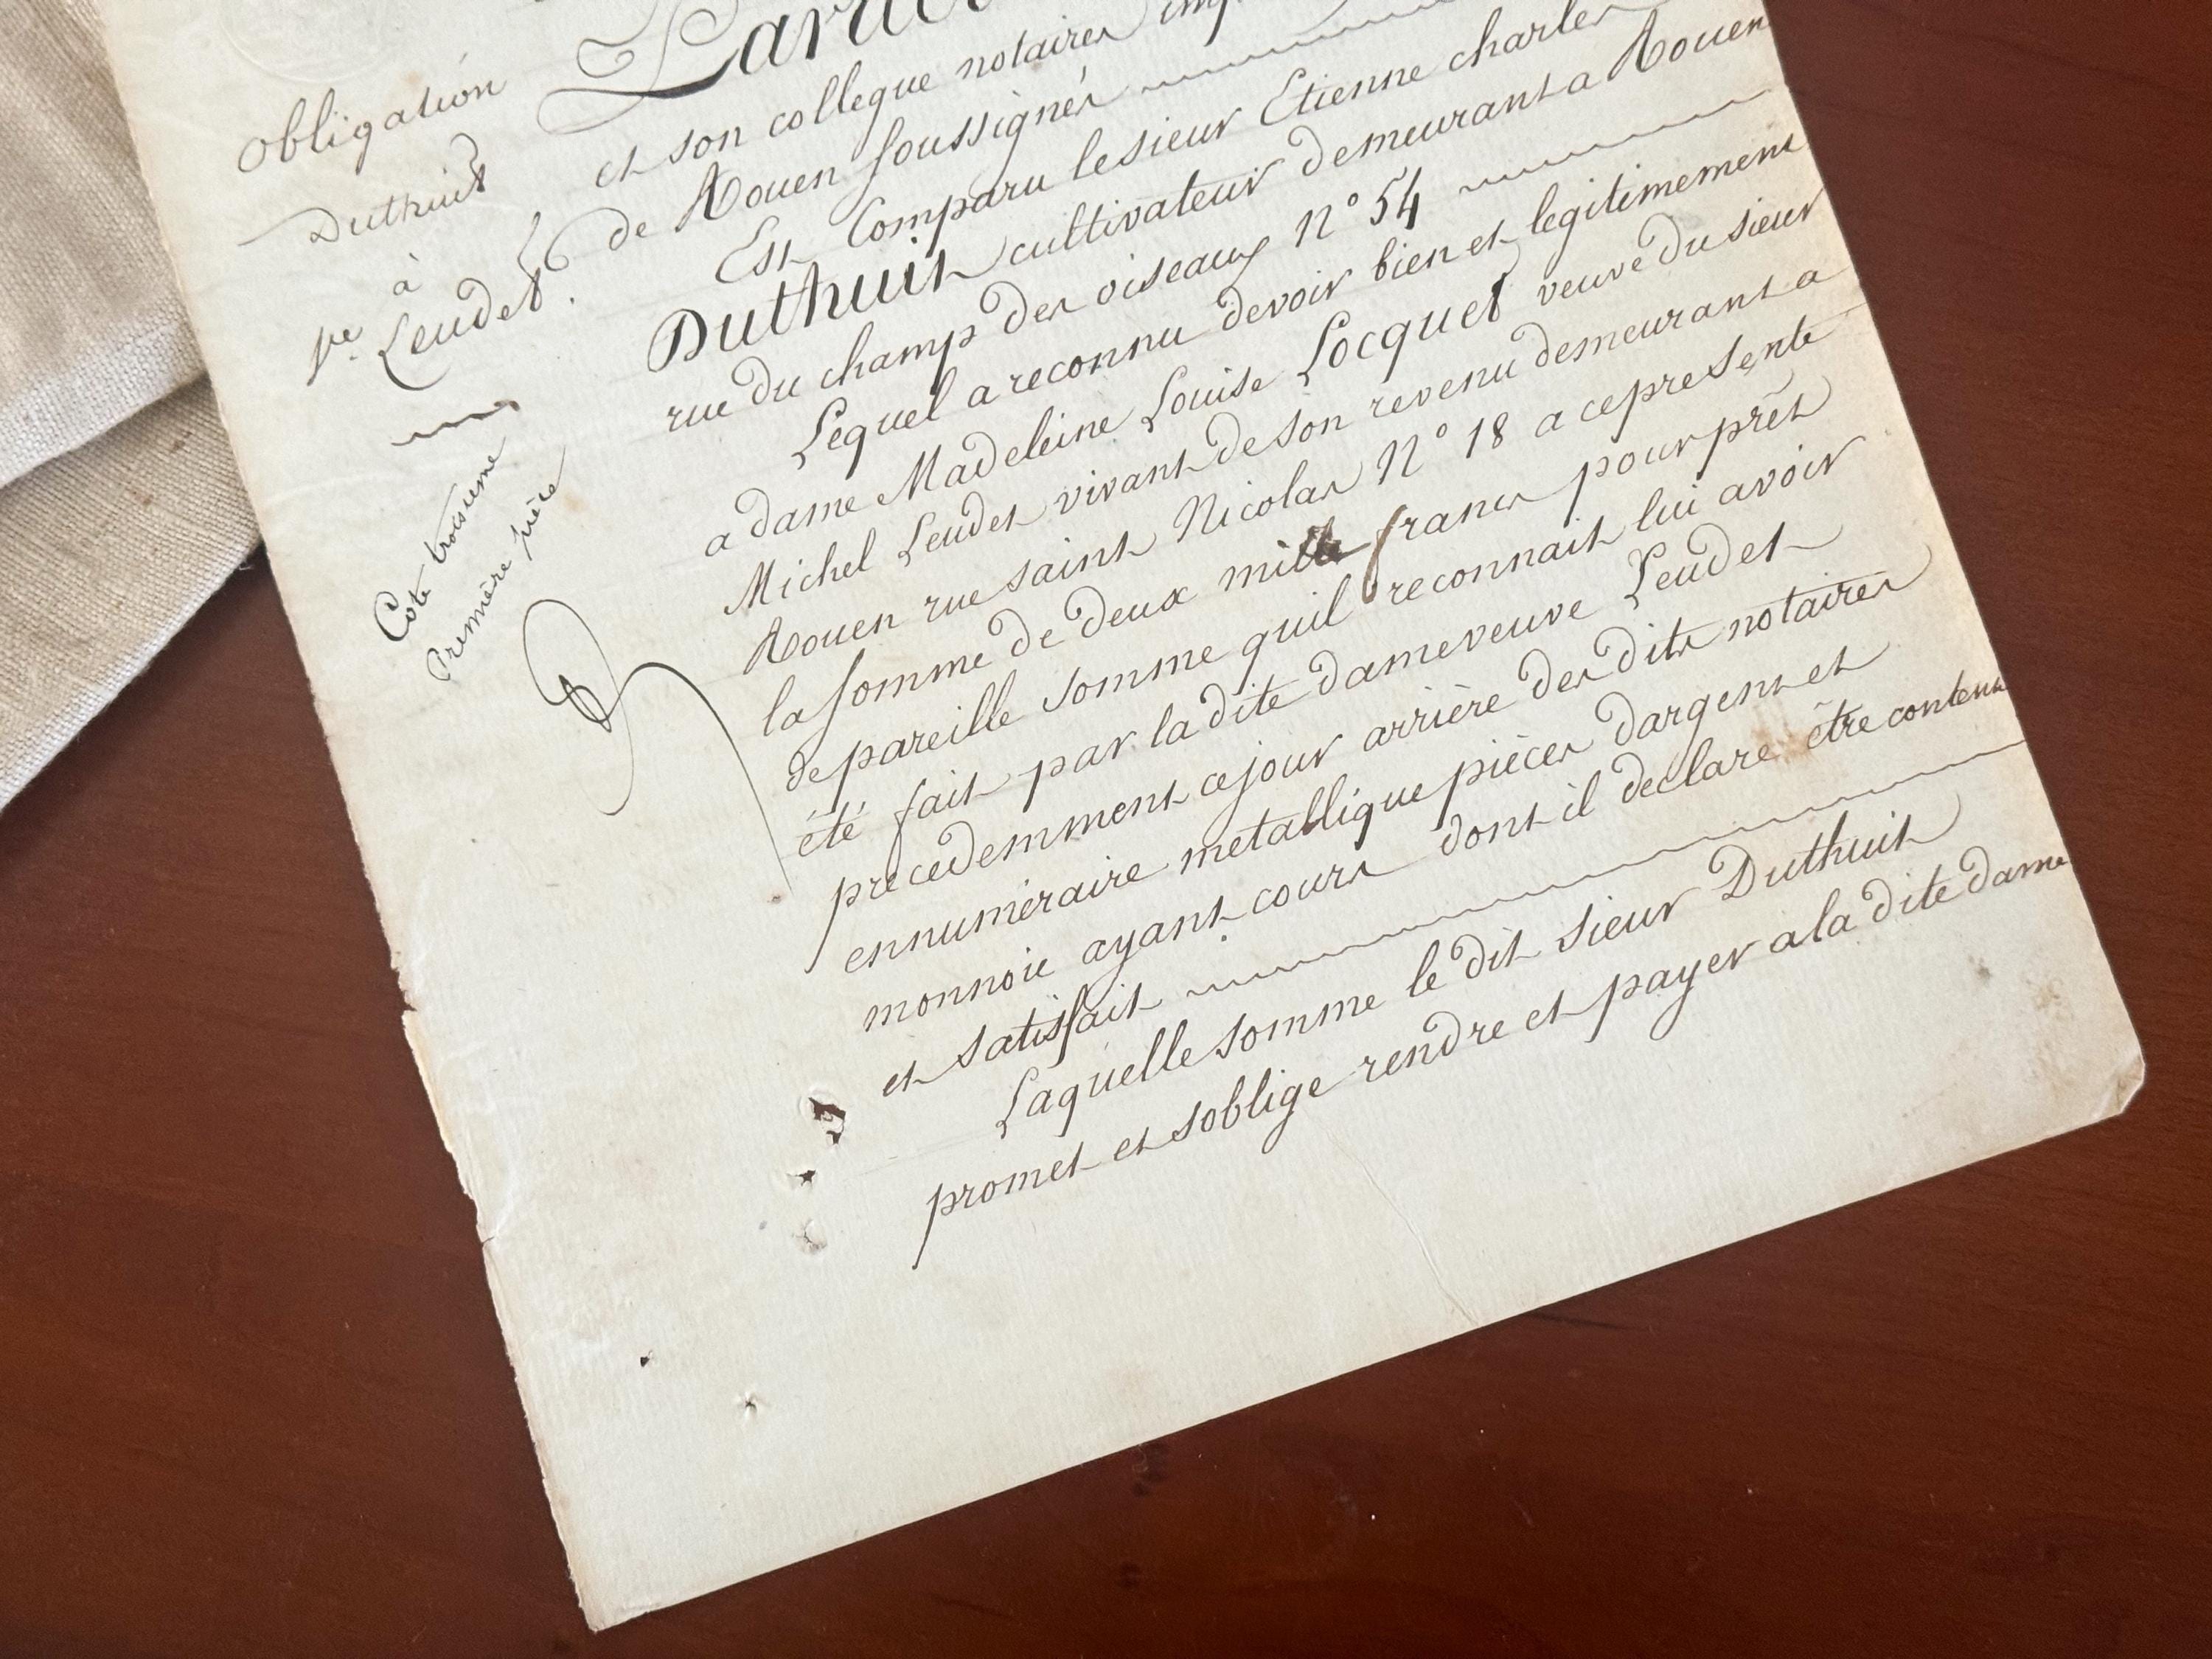 obligation
Duthuit
à
Ve. Leudet.
Cote troisieme
Premiere pièce
et son collegue notaires
de Rouen soussignés
Est Comparu le sieur Etienne charles
Duthuit cultivateur demeurant a Rouen
rue du champ des oiseaux N° 54
Lequel a reconnu devoir bien et legitimement
a dame Madeleine Louise Locquet veuve du sieur
Michel Leudet vivant de son revenu demeurant a
Rouen rue saint Nicolas N° 18 a ce presente
la somme de deux mille francs pour prêt
de pareille somme quil reconnait lui avoir
été fait par la dite dame veuve Leudet
précedemment ce jour arrière des dits notaires
en numéraire metallique pièces dargent et
monnoie ayant cours dont il declare être content
et satisfait
Laquelle somme le dit sieur Duthuit
promet et soblige rendre et payer a la dite dame